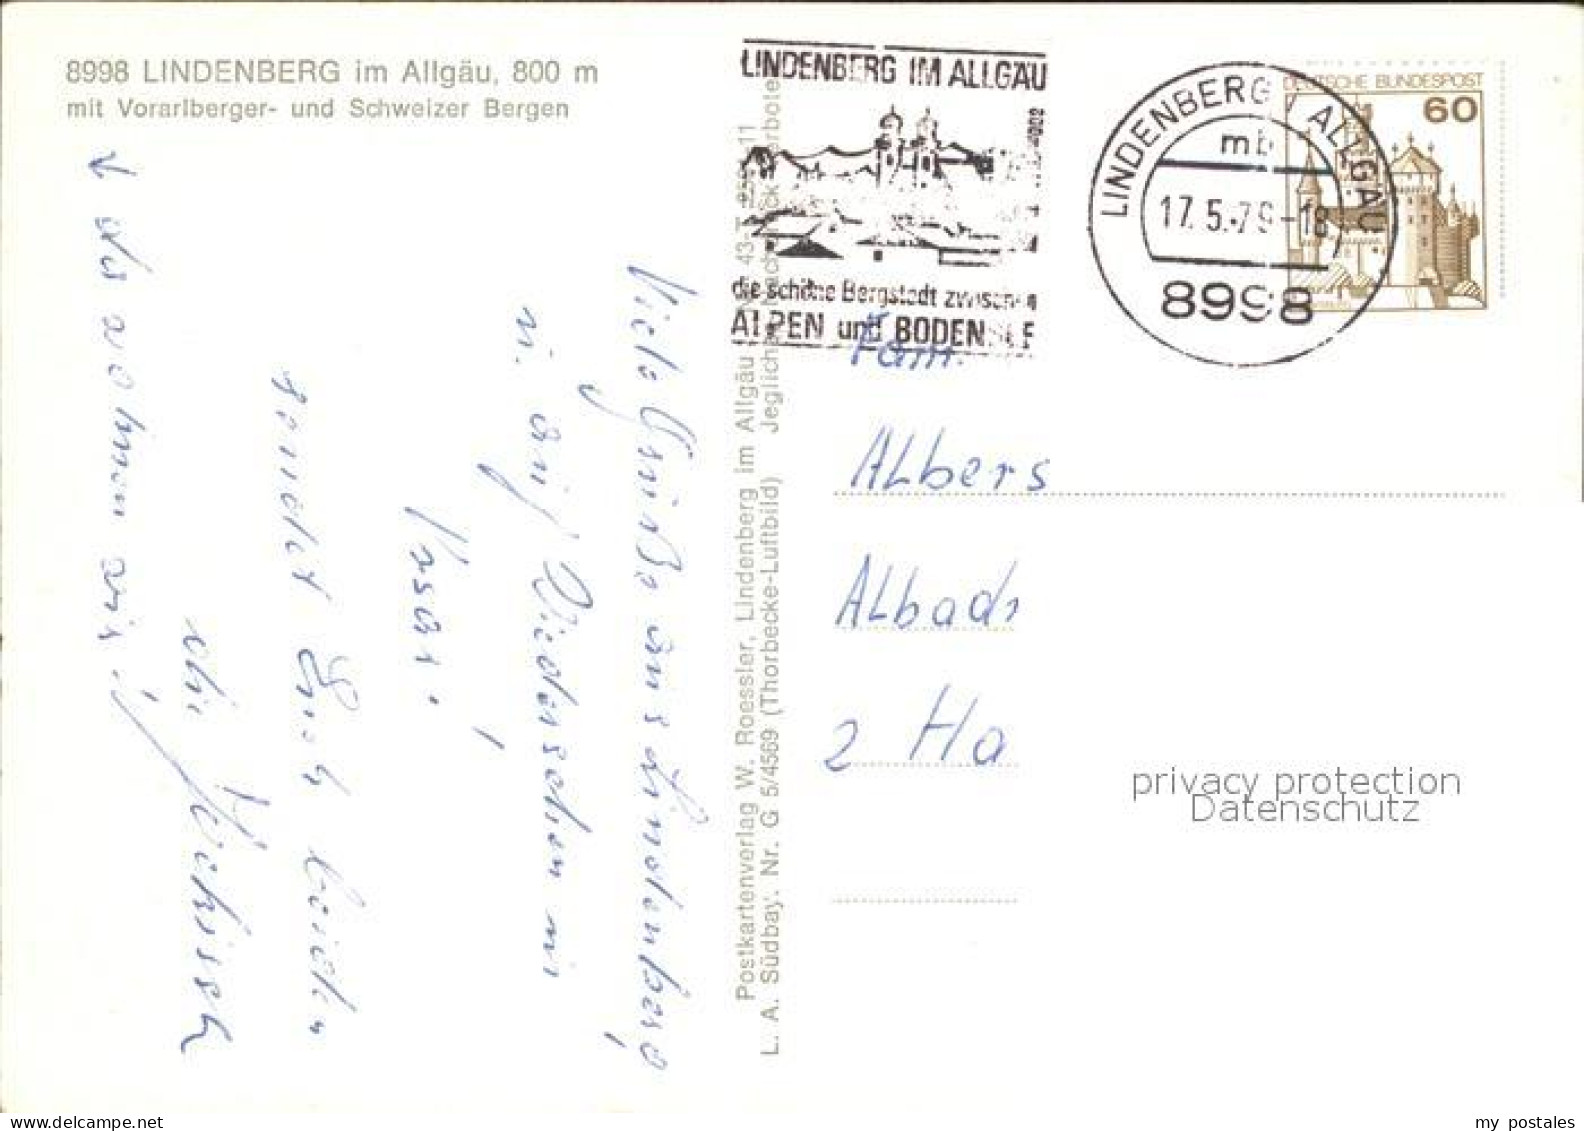 8998 LINDENBERG im Allgäu, 800 m
mit Vorarlberger- und Schweizer Bergen
↓ da wohnen wir!
Viele Grüße aus Lindenberg
u. auf Wiedersehen im
sendet Euch beiden
die
Postkartenverlag W. Roessler, Lindenberg im Allgäu
L. A. Südbay. Nr. G 5/4569 (Thorbecke-Luftbild)
LINDENBERG IM ALLGÄU
die schöne Bergstadt zwischen
ALPEN und BODENSEE
LINDENBERG / ALLGÄU
mb
17.5.79-18
8998
DEUTSCHE BUNDESPOST
60
Fam.
Albers
2 Ha
privacy protection
Datenschutz
my postales